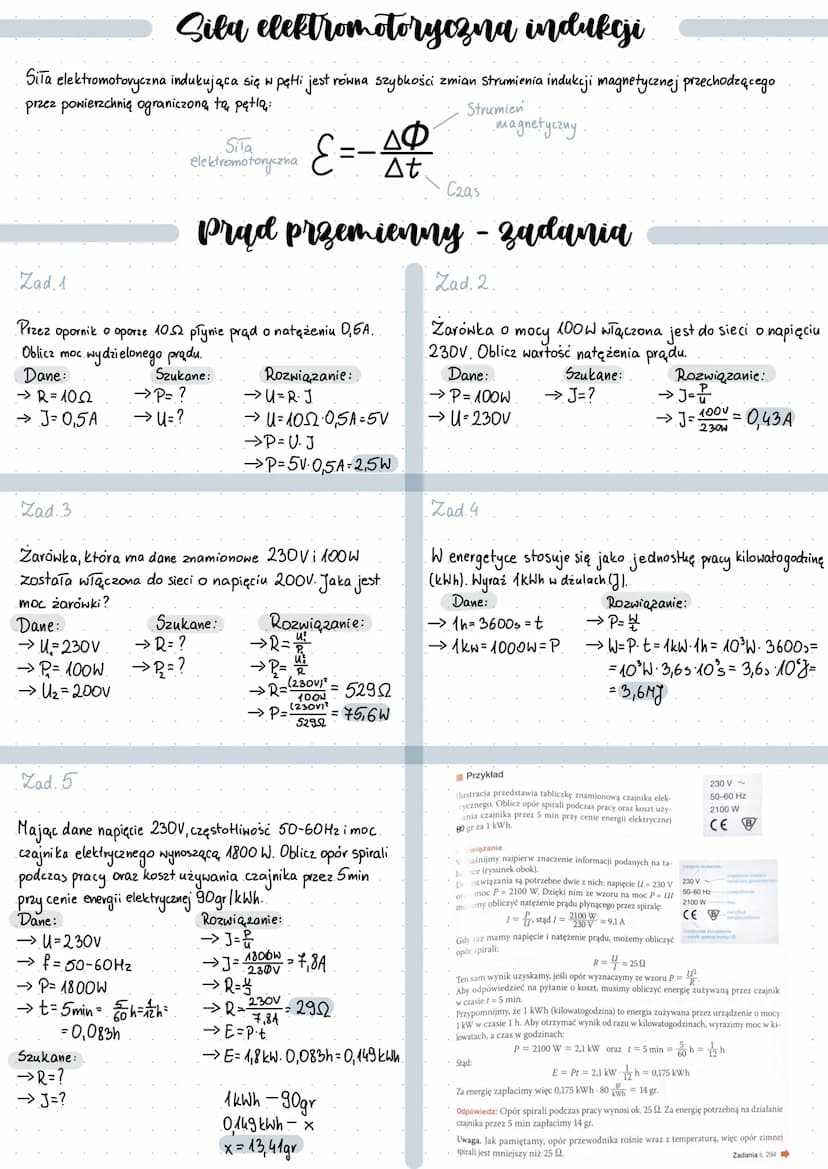 Siła elektromotoryczna indukcji
Siła elektromotoryczna indukująca się w pętli jest równa szybkości zmian strumienia indukcji magnetycznej przechodzącego
przez powierzchnię ograniczoną tą pętlą:
Strumień
magnetyczny
Siła
elektromotoryczna
Ɛ=-ΔΦ/Δt
Czas
Prąd przemienny - zadania
Zad.1
Przez opornik o oporze 10Ω płynie prąd o natężeniu 0,6A.
Oblicz moc wydzielonego prądu.
Dane: Szukane: Rozwiązanie:
→ R=10Ω →P= ? →U=R·J
→ J=0,5A →U=? → U=10Ω·0,5A=5V
→P=U·J
→P=5V·0,5A=2,5W
Zad. 2
Żarówka o mocy 100W włączona jest do sieci o napięciu
230V. Oblicz wartość natężenia prądu.
Dane: Szukane: Rozwiązanie:
→ P=100W → J=? → J=P/U
→ U=230V → J=100V/230W = 0,43A
Zad.3
Żarówka, która ma dane znamionowe 230V i 100W
została włączona do sieci o napięciu 200V. Jaka jest
moc żarówki?
Dane: Szukane: Rozwiązanie:
→ U₁=230V →R=? →R=U₁²/P₁
→P₁= 100W →P₂=? →P₂=U₂²/R
→ U₂=200V →R=(230V)²/100W = 529Ω
→ P=(230V)²/529Ω = 75,6W
Zad.4
W energetyce stosuje się jako jednostkę pracy kilowatogodzinę
(kWh). Wyraź 1kWh w dżulach (J).
Dane: Rozwiązanie:
→ 1h=3600s=t → P=W/t
→1kW=1000W=P →W=P·t=1kW·1h=10³W·3600s=
=10³W·3,6s·10³s=3,6s·10⁶J=
=3,6MJ
Zad.5
Mając dane napięcie 230V, częstotliwość 50-60Hz i moc
czajnika elektrycznego wynoszącą 1800 W. Oblicz opór spirali
podczas pracy oraz koszt używania czajnika przez 5min
przy cenie energii elektrycznej 90gr/kWh.
Dane: Rozwiązanie:
→ U=230V → J=P/U
→ f=50-60Hz →J=1800W/230V=7,8A
→ P=1800W →R=U/J
→t=5min= 5/60h=1/12h= →R=230V/7,8A=29Ω
=0,083h →E=P·t
Szukane: →E=1,8kW·0,083h=0,149kWh
→R=?
→ J=? 1kWh-90gr
0,149kWh-x
x=13,41gr
Przykład
Ilustracja przedstawia tabliczkę znamionową czajnika elek-
trycznego. Oblicz opór spirali podczas pracy oraz koszt uży-
wania czajnika przez 5 min przy cenie energii elektrycznej
80 gr za 1 kWh.
230 V ~
50-60 Hz
2100 W
CE B
najpierw znaczenie informacji podanych na ta-
(rysunek obok).
rozwiązania są potrzebne dwie z nich: napięcie U = 230 V
moc P = 2100 W. Dzięki nim ze wzoru na moc P = UI
możemy obliczyć natężenie prądu płynącego przez spiralę:
I = P/U, stąd I = 2100 W/230 V ≈ 9,1 A
230 V ~
50-60 Hz
2100 W
CE B
Gdy już mamy napięcie i natężenie prądu, możemy obliczyć
opór spirali:
R = U/I ≈ 25 Ω
Ten sam wynik uzyskamy, jeśli opór wyznaczymy ze wzoru P = U²/R.
Aby odpowiedzieć na pytanie o koszt, musimy obliczyć energię zużywaną przez czajnik
w czasie t = 5 min.
Przypomnijmy, że 1 kWh (kilowatogodzina) to energia zużywana przez urządzenie o mocy
1 kW w czasie 1 h. Aby otrzymać wynik od razu w kilowatogodzinach, wyrazimy moc w ki-
lowatach, a czas w godzinach:
P = 2100 W = 2,1 kW oraz t = 5 min = 5/60 h = 1/12 h
Stąd:
E = Pt = 2,1 kW · 1/12 h = 0,175 kWh
Za energię zapłacimy więc 0,175 kWh · 80 gr/kWh = 14 gr.
Odpowiedź: Opór spirali podczas pracy wynosi ok. 25 Ω. Za energię potrzebną na działanie
czajnika przez 5 min zapłacimy 14 gr.
Uwaga. Jak pamiętamy, opór przewodnika rośnie wraz z temperaturą, więc opór zimnej
spirali jest mniejszy niż 25 Ω.
Zadania s. 294